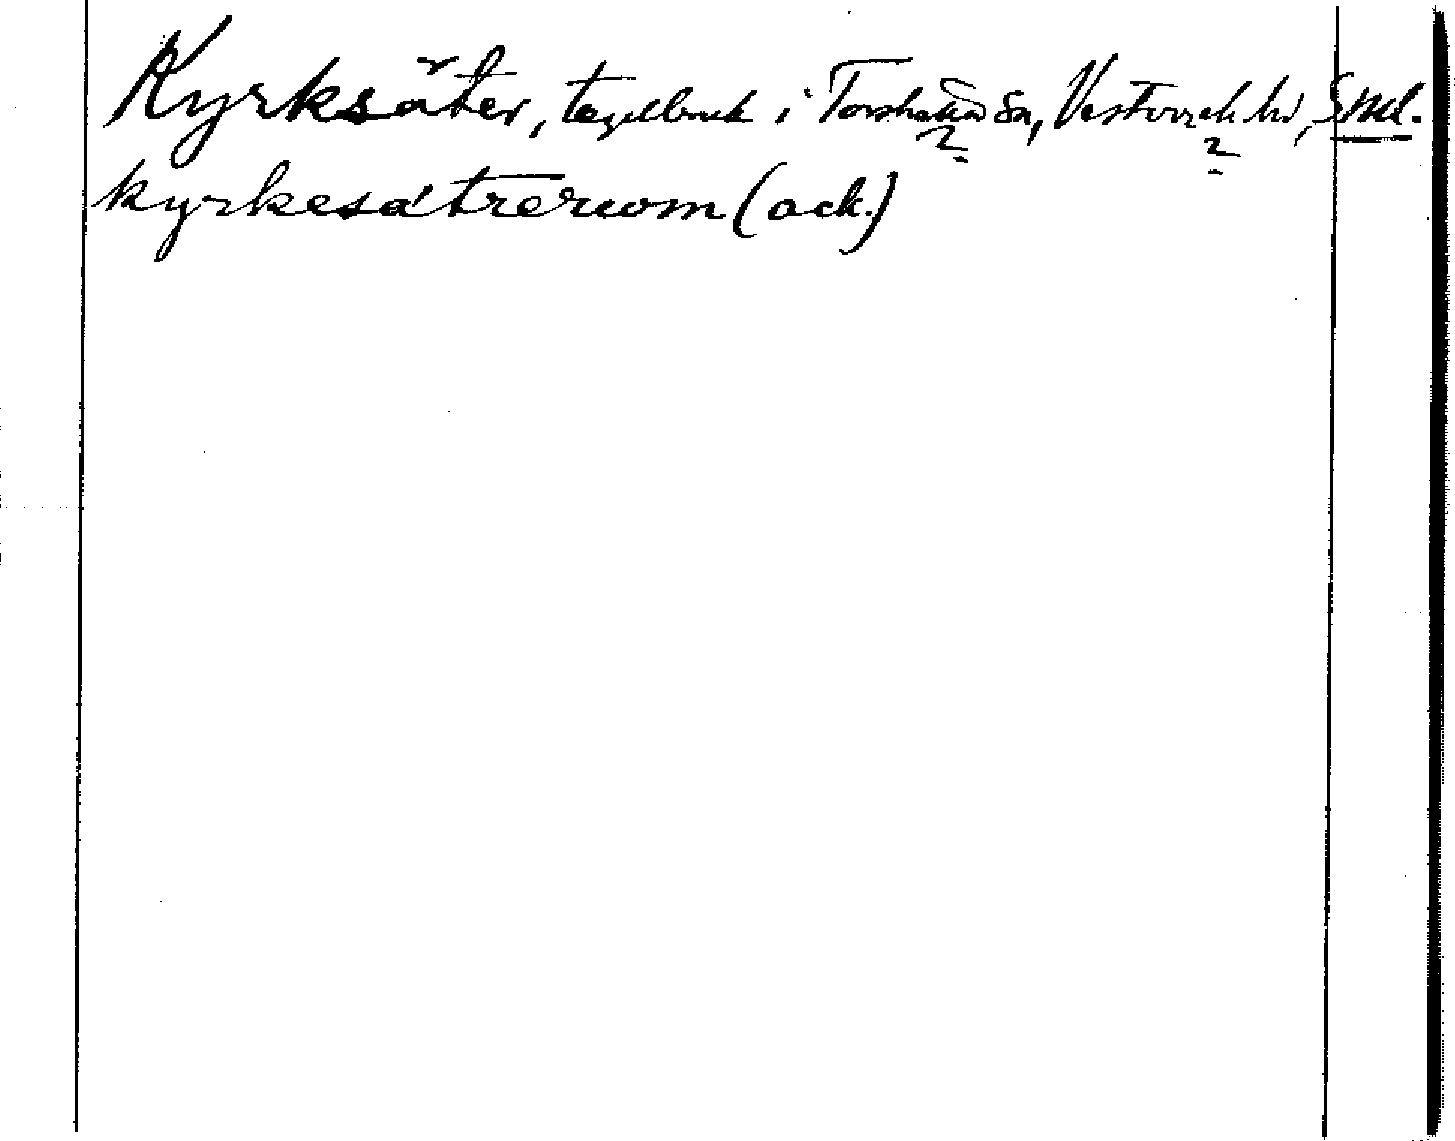 Kyrksäter, tegelbruk i Torshälla sn, Vesterrek hd, Sml.
kyrkesätrerum (ack.)